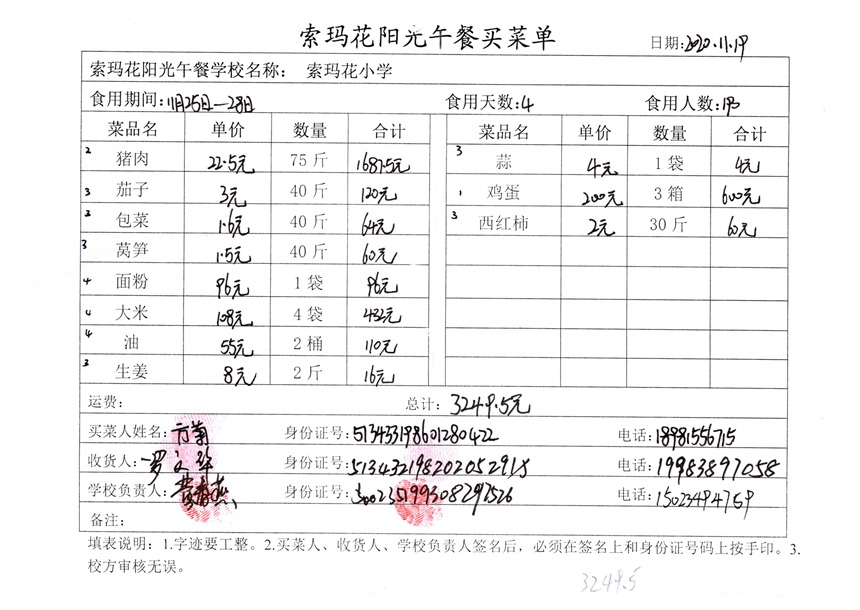 索玛花阳光午餐买菜单
日期:2020.11.19
索玛花阳光午餐学校名称： 索玛花小学
食用期间:11月25日—28日 食用天数:4 食用人数:193
菜品名 单价 数量 合计 菜品名 单价 数量 合计
2 猪肉 22.5元 75斤 1687.5元 3 蒜 4元 1袋 4元
3 茄子 3元 40斤 120元 1 鸡蛋 200元 3箱 600元
2 包菜 1.6元 40斤 64元 3 西红柿 2元 30斤 60元
3 莴笋 1.5元 40斤 60元
4 面粉 96元 1袋 96元
4 大米 108元 4袋 432元
4 油 55元 2桶 110元
3 生姜 8元 2斤 16元
运费： 总计：3249.5元
买菜人姓名: 方菊 身份证号:513433198601280422 电话:18981556715
收货人: 身份证号:513432198202052918 电话:19983897058
学校负责人: 身份证号:500235199308297526 电话:15023494759
备注：
填表说明：1.字迹要工整。2.买菜人、收货人、学校负责人签名后，必须在签名上和身份证号码上按手印。3.
校方审核无误。
3249.5